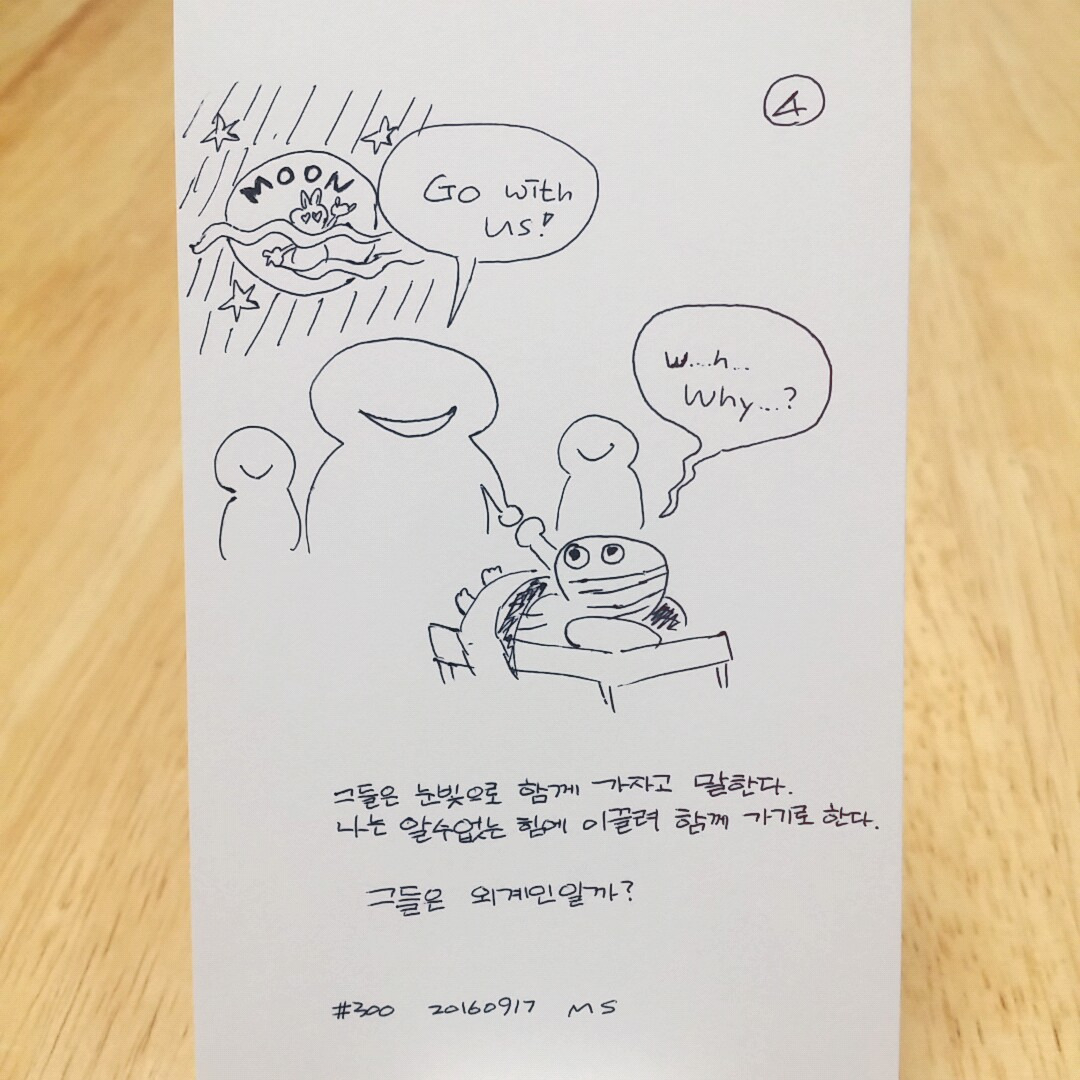 4
MOON
Go with
us!
W...h..
Why...?
그들은 눈빛으로 함께 가자고 말한다.
나는 알수없는 힘에 이끌려 함께 가기로 한다.
그들은 외계인일까?
#300 20160917 MS